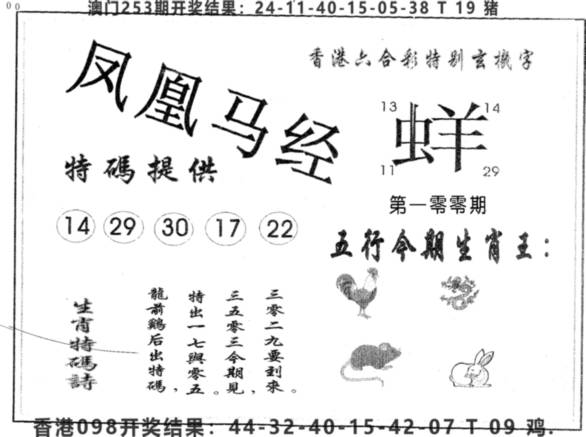 澳门253期开奖结果：24-11-40-15-05-38 T 19 猪
香港六合彩特别玄機字
凤凰马经
13 14
蛘
11 29
特碼提供
第一零零期
14 29 30 17 22
五行今期生肖王：
生肖特碼詩
三零二九要到來。
三五零三今期見，
特出一七與零五。
龍前鷄后出特碼，
香港098开奖结果：44-32-40-15-42-07 T 09 鸡.